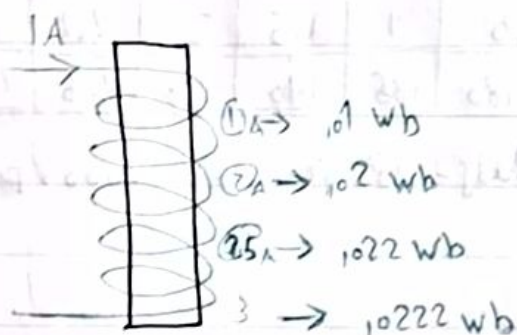 1A
①A → ,01 wb
②A → ,02 wb
25A → ,022 wb
3 → ,0222 wb